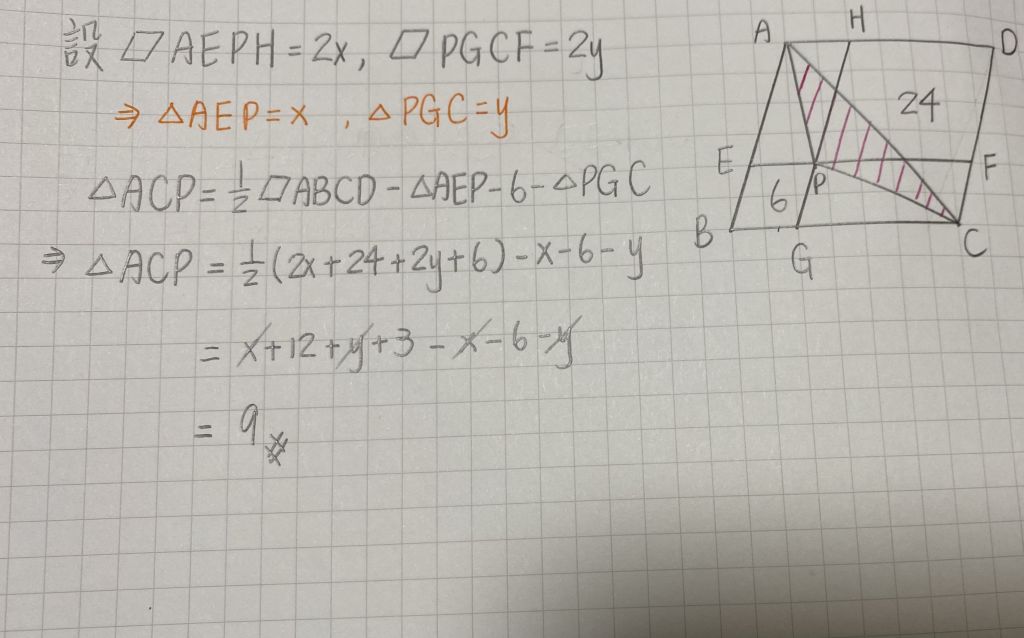 設 ▱AEPH=2x, ▱PGCF=2y
⇒ △AEP=x , △PGC=y
△ACP=½▱ABCD-△AEP-6-△PGC
⇒ △ACP=½(2x+24+2y+6)-x-6-y
=x+12+y+3-x-6-y
=9
A H D
24
E P F
6
B G C